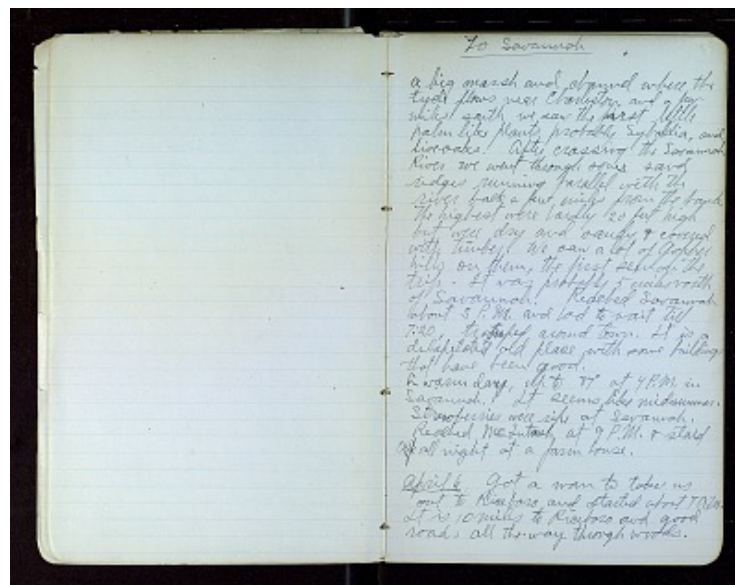 To Savannah
a big marsh and channel where the
tyde flows near Charleston, and a few
miles south we saw the first little
palm like plants, probably and
liveoaks. After crossing the Savannah
River we went through some sand
ridges running parallel with the
river back a few miles from the bank
The highest were hardly 20 feet high
but were dry and sandy & covered
with timber. We saw a lot of Gopher
hills on them, the first seen of the
trip. It was probably 5 miles north
of Savannah. Reached Savannah
about 3 P.M. and had to wait till
7:20, tramped around town. It is a
delapitated old place with some buildings
that have been good.
warm day, up to 87° at 4 P.M. in
Savannah. It seems like midsummer.
Strawberries were ripe at Savannah.
Reached McIntosh at 9 P.M. & staid
all night at a farm house.
April 6 Got a man to take us
out to Riceboro and started about
It is 10 miles to Riceboro and good
roads all the way through woods.